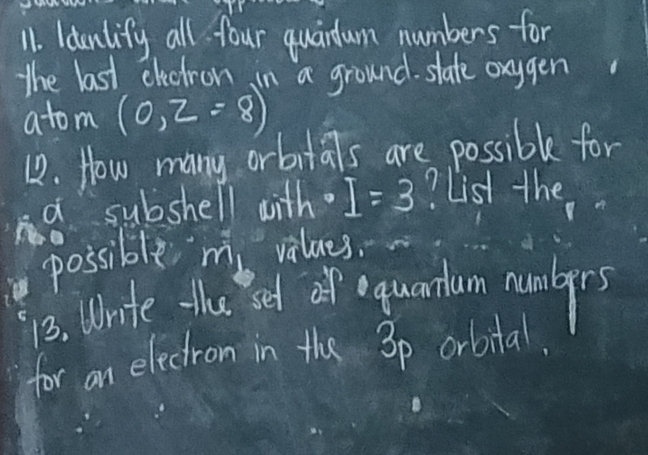 11. Identify all four quantum numbers for
the last electron in a ground-state oxygen
atom (O, Z = 8)
12. How many orbitals are possible for
a subshell with I = 3? List the
possible ml values.
13. Write the set of quantum numbers
for an electron in the 3p orbital.